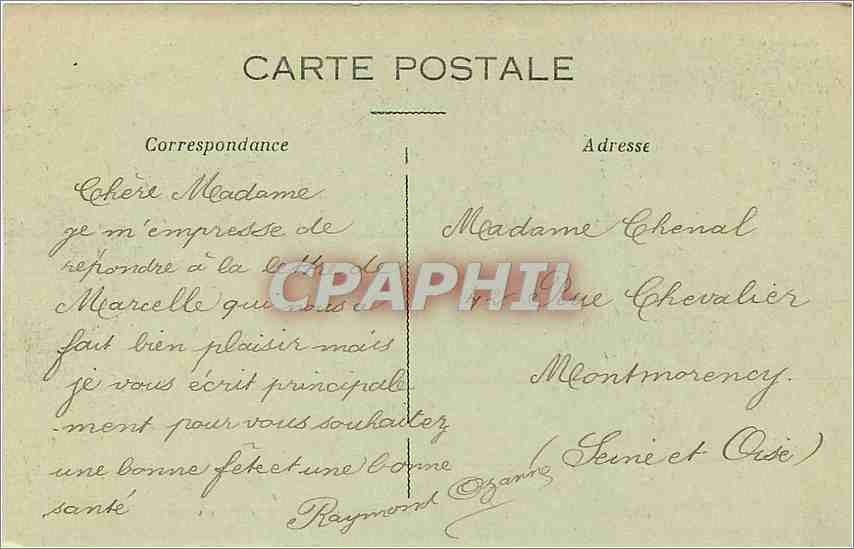 CARTE POSTALE
Correspondance
Chère Madame
je m'empresse de
répondre à la lettre de
Marcelle qui nous a
fait bien plaisir mais
je vous écrit principale
-ment pour vous souhaitez
une bonne fête et une bonne
santé
Raymond Ozanne
Adresse
Madame Chenal
Rue Chevalier
Montmorency.
(Seine et Oise)
CPAPHIL